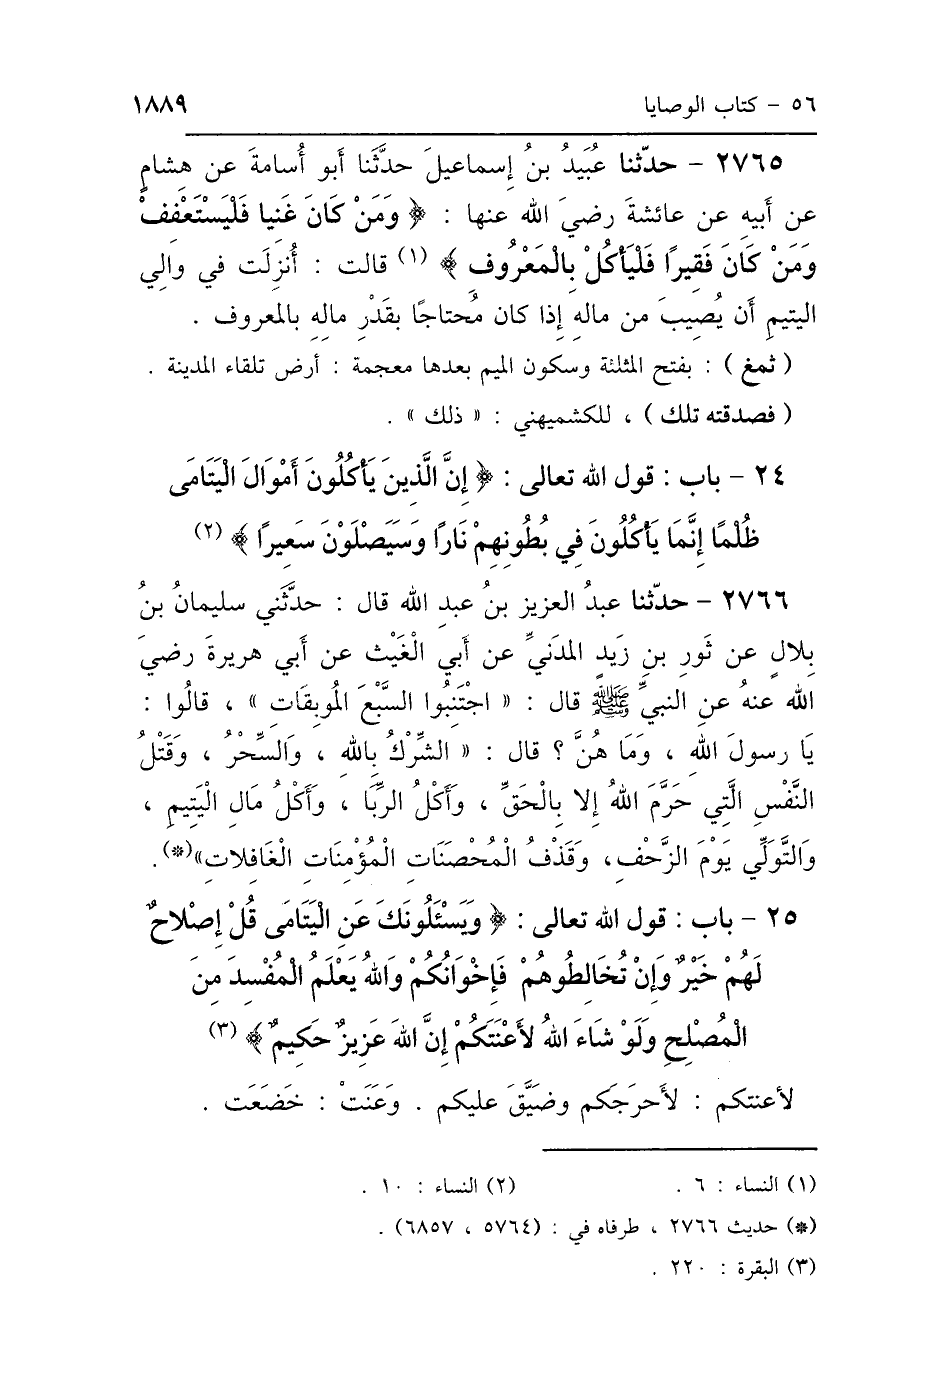 ٥٦ - كتاب الوصايا ١٨٨٩
٢٧٦٥ - حدّثنا عُبَيدُ بنُ إسماعيلَ حدَّثَنا أبو أُسامةَ عن هشامٍ
عن أبيهِ عن عائشةَ رضيَ الله عنها : ﴿ وَمَنْ كَانَ غَنيا فَلْيَسْتَعْفِفْ
وَمَنْ كَانَ فَقِيرًا فَلْيَأْكُلْ بِالْمَعْرُوفِ ﴾ (١) قالت : أُنزِلَت في والِي
اليتيمِ أن يُصِيبَ من مالهِ إذا كان مُحتاجًا بقَدْرِ مالِهِ بالمعروف .
( ثمغ ) : بفتح المثلثة وسكون الميم بعدها معجمة : أرض تلقاء المدينة .
( فصدقته تلك ) ، للكشميهني : « ذلك » .
٢٤ - باب : قول الله تعالى : ﴿ إِنَّ الَّذِينَ يَأْكُلُونَ أَمْوَالَ الْيَتَامَى
ظُلْمًا إِنَّمَا يَأْكُلُونَ فِي بُطُونِهِمْ نَارًا وَسَيَصْلَوْنَ سَعِيرًا ﴾ (٢)
٢٧٦٦ - حدّثنا عبدُ العزيزِ بنُ عبدِ الله قال : حدَّثَني سليمانُ بنُ
بِلالٍ عن ثَورِ بنِ زَيدٍ المدَنيِّ عن أبي الْغَيْثِ عن أبي هريرةَ رضيَ
الله عنهُ عنِ النبيِّ ﷺ قال : « اجْتَنِبُوا السَّبْعَ المُوبِقَاتِ » ، قالُوا :
يَا رسولَ الله ، وَمَا هُنَّ ؟ قال : « الشِّرْكُ بِالله ، وَالسِّحْرُ ، وَقَتْلُ
النَّفْسِ الَّتِي حَرَّمَ اللهُ إلا بِالْحَقِّ ، وَأَكْلُ الرِّبَا ، وَأَكْلُ مَالِ الْيَتِيمِ ،
وَالتَّوَلِّي يَوْمَ الزَّحْفِ، وَقَذْفُ الْمُحْصَنَاتِ الْمُؤْمِنَاتِ الْغَافِلَاتِ»(*).
٢٥ - باب : قول الله تعالى : ﴿ وَيَسْئَلُونَكَ عَنِ الْيَتَامَى قُلْ إِصْلَاحٌ
لَهُمْ خَيْرٌ وَإِنْ تُخَالِطُوهُمْ فَإِخْوَانُكُمْ وَاللهُ يَعْلَمُ الْمُفْسِدَ مِنَ
الْمُصْلِحِ وَلَوْ شَاءَ اللهُ لأَعْنَتَكُمْ إِنَّ اللهَ عَزِيزٌ حَكِيمٌ ﴾ (٣)
لأعنتكم : لأحرَجَكم وضَيَّقَ عليكم . وعَنَتْ : خضَعَت .
(١) النساء : ٦ . (٢) النساء : ١٠ .
(*) حديث ٢٧٦٦ ، طرفاه في : (٥٧٦٤ ، ٦٨٥٧) .
(٣) البقرة : ٢٢٠ .